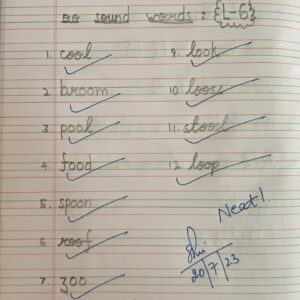 oo sound words : {L-6}
1. cool
2. broom
3. pool
4. food
5. spoon
6. roof
7. zoo
9. look
10. loose
11. stool
12. loop
Neat!
20/7/23